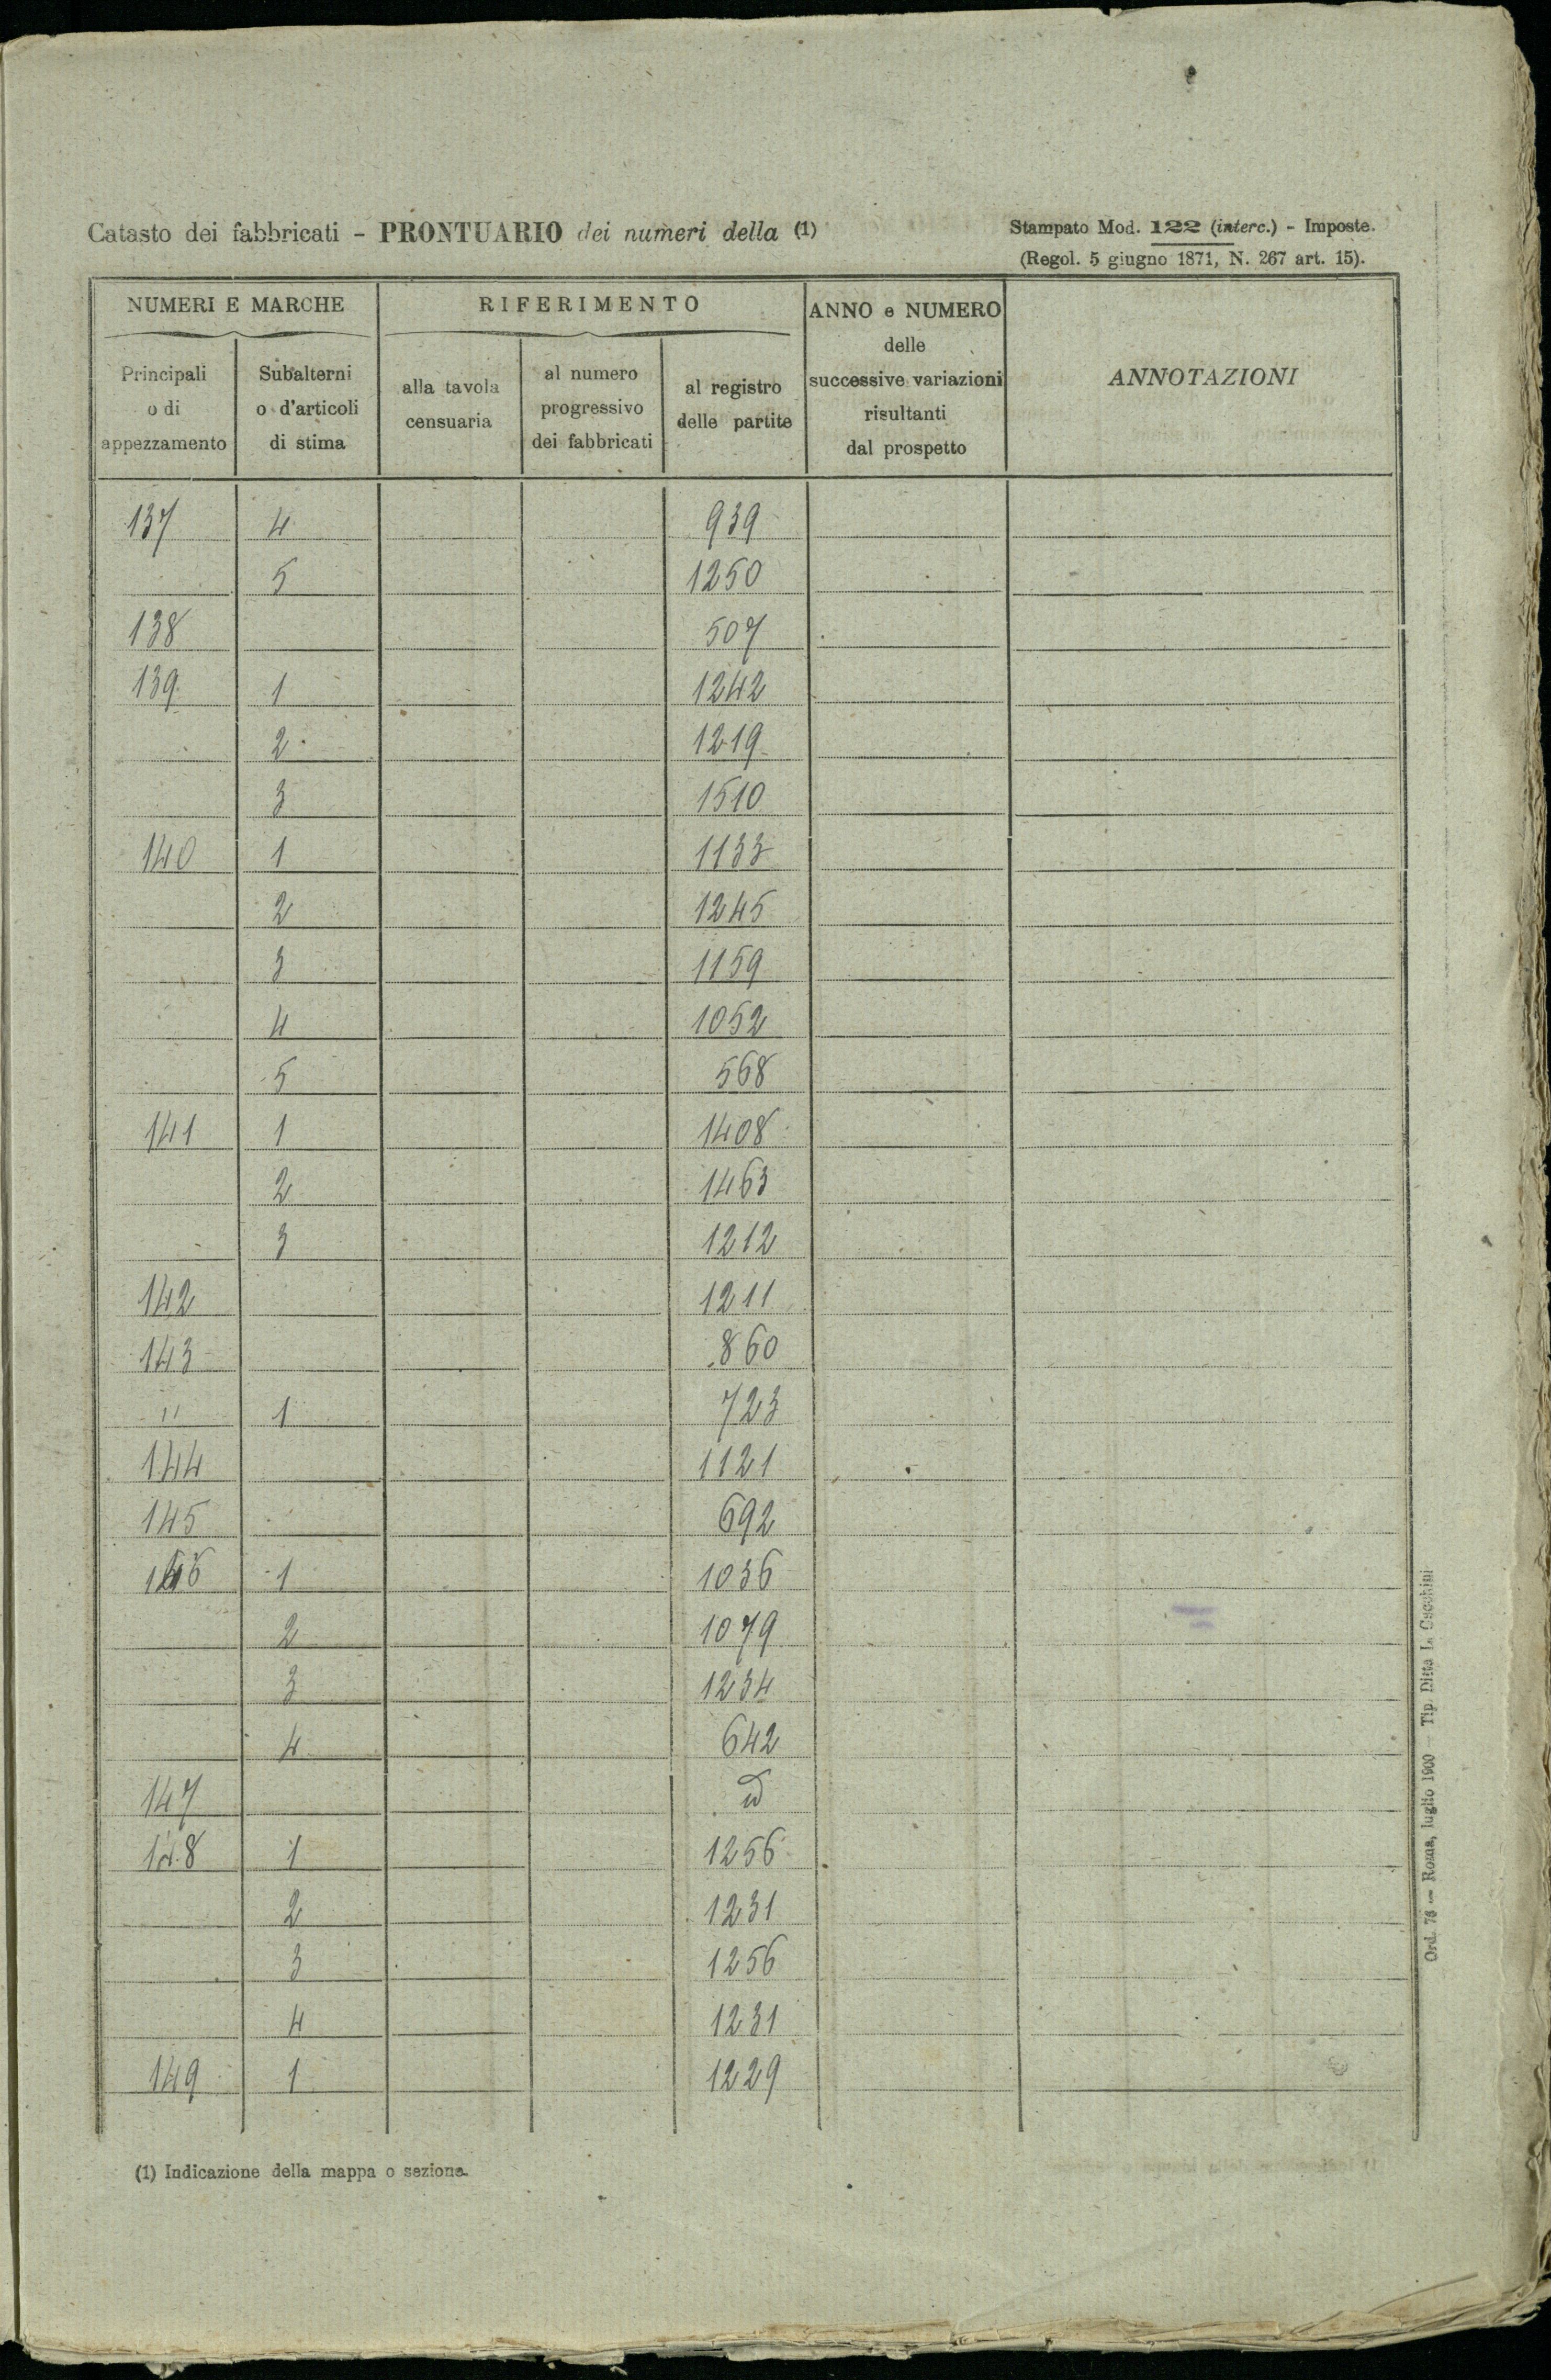 Catasto dei fabbricati - PRONTUARIO dei numeri della (1)
Stampato Mod. 122 (interc.) - Imposte.
(Regol. 5 giugno 1871, N. 267 art. 15).
NUMERI E MARCHE
RIFERIMENTO
ANNO e NUMERO
delle
successive variazioni
risultanti
dal prospetto
ANNOTAZIONI
Principali
o di
appezzamento
Subalterni
o d'articoli
di stima
alla tavola
censuaria
al numero
progressivo
dei fabbricati
al registro
delle partite
137 4 939
5 1250
138 507
139 1 1242
2 1219
3 1510
140 1 1133
2 1245
3 1159
4 1052
5 568
141 1 1408
2 1463
3 1212
142 1211
143 860
" 1 723
144 1121
145 692
146 1 1036
2 1079
3 1234
4 642
147 id
148 1 1256
2 1231
3 1256
4 1231
149 1 1229
(1) Indicazione della mappa o sezione.
Ord. 78 — Roma, luglio 1900 — Tip. Ditta L. Cecchini